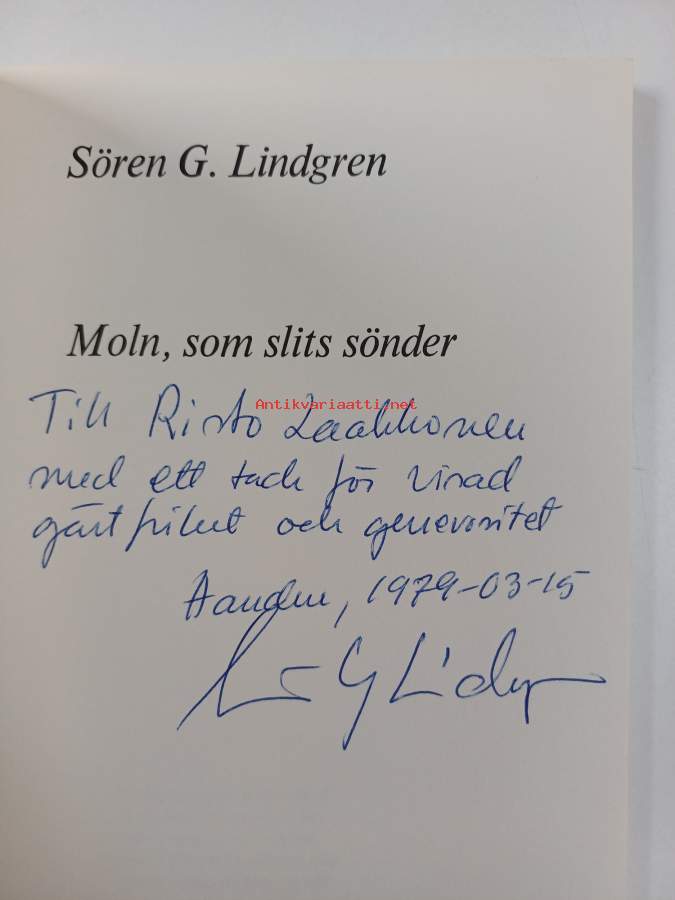 Sören G. Lindgren
Moln, som slits sönder
Antikvariaatti.net
Till Risto Laakkonen
med ett tack för visad
gästfrihet och generositet
1979-03-15